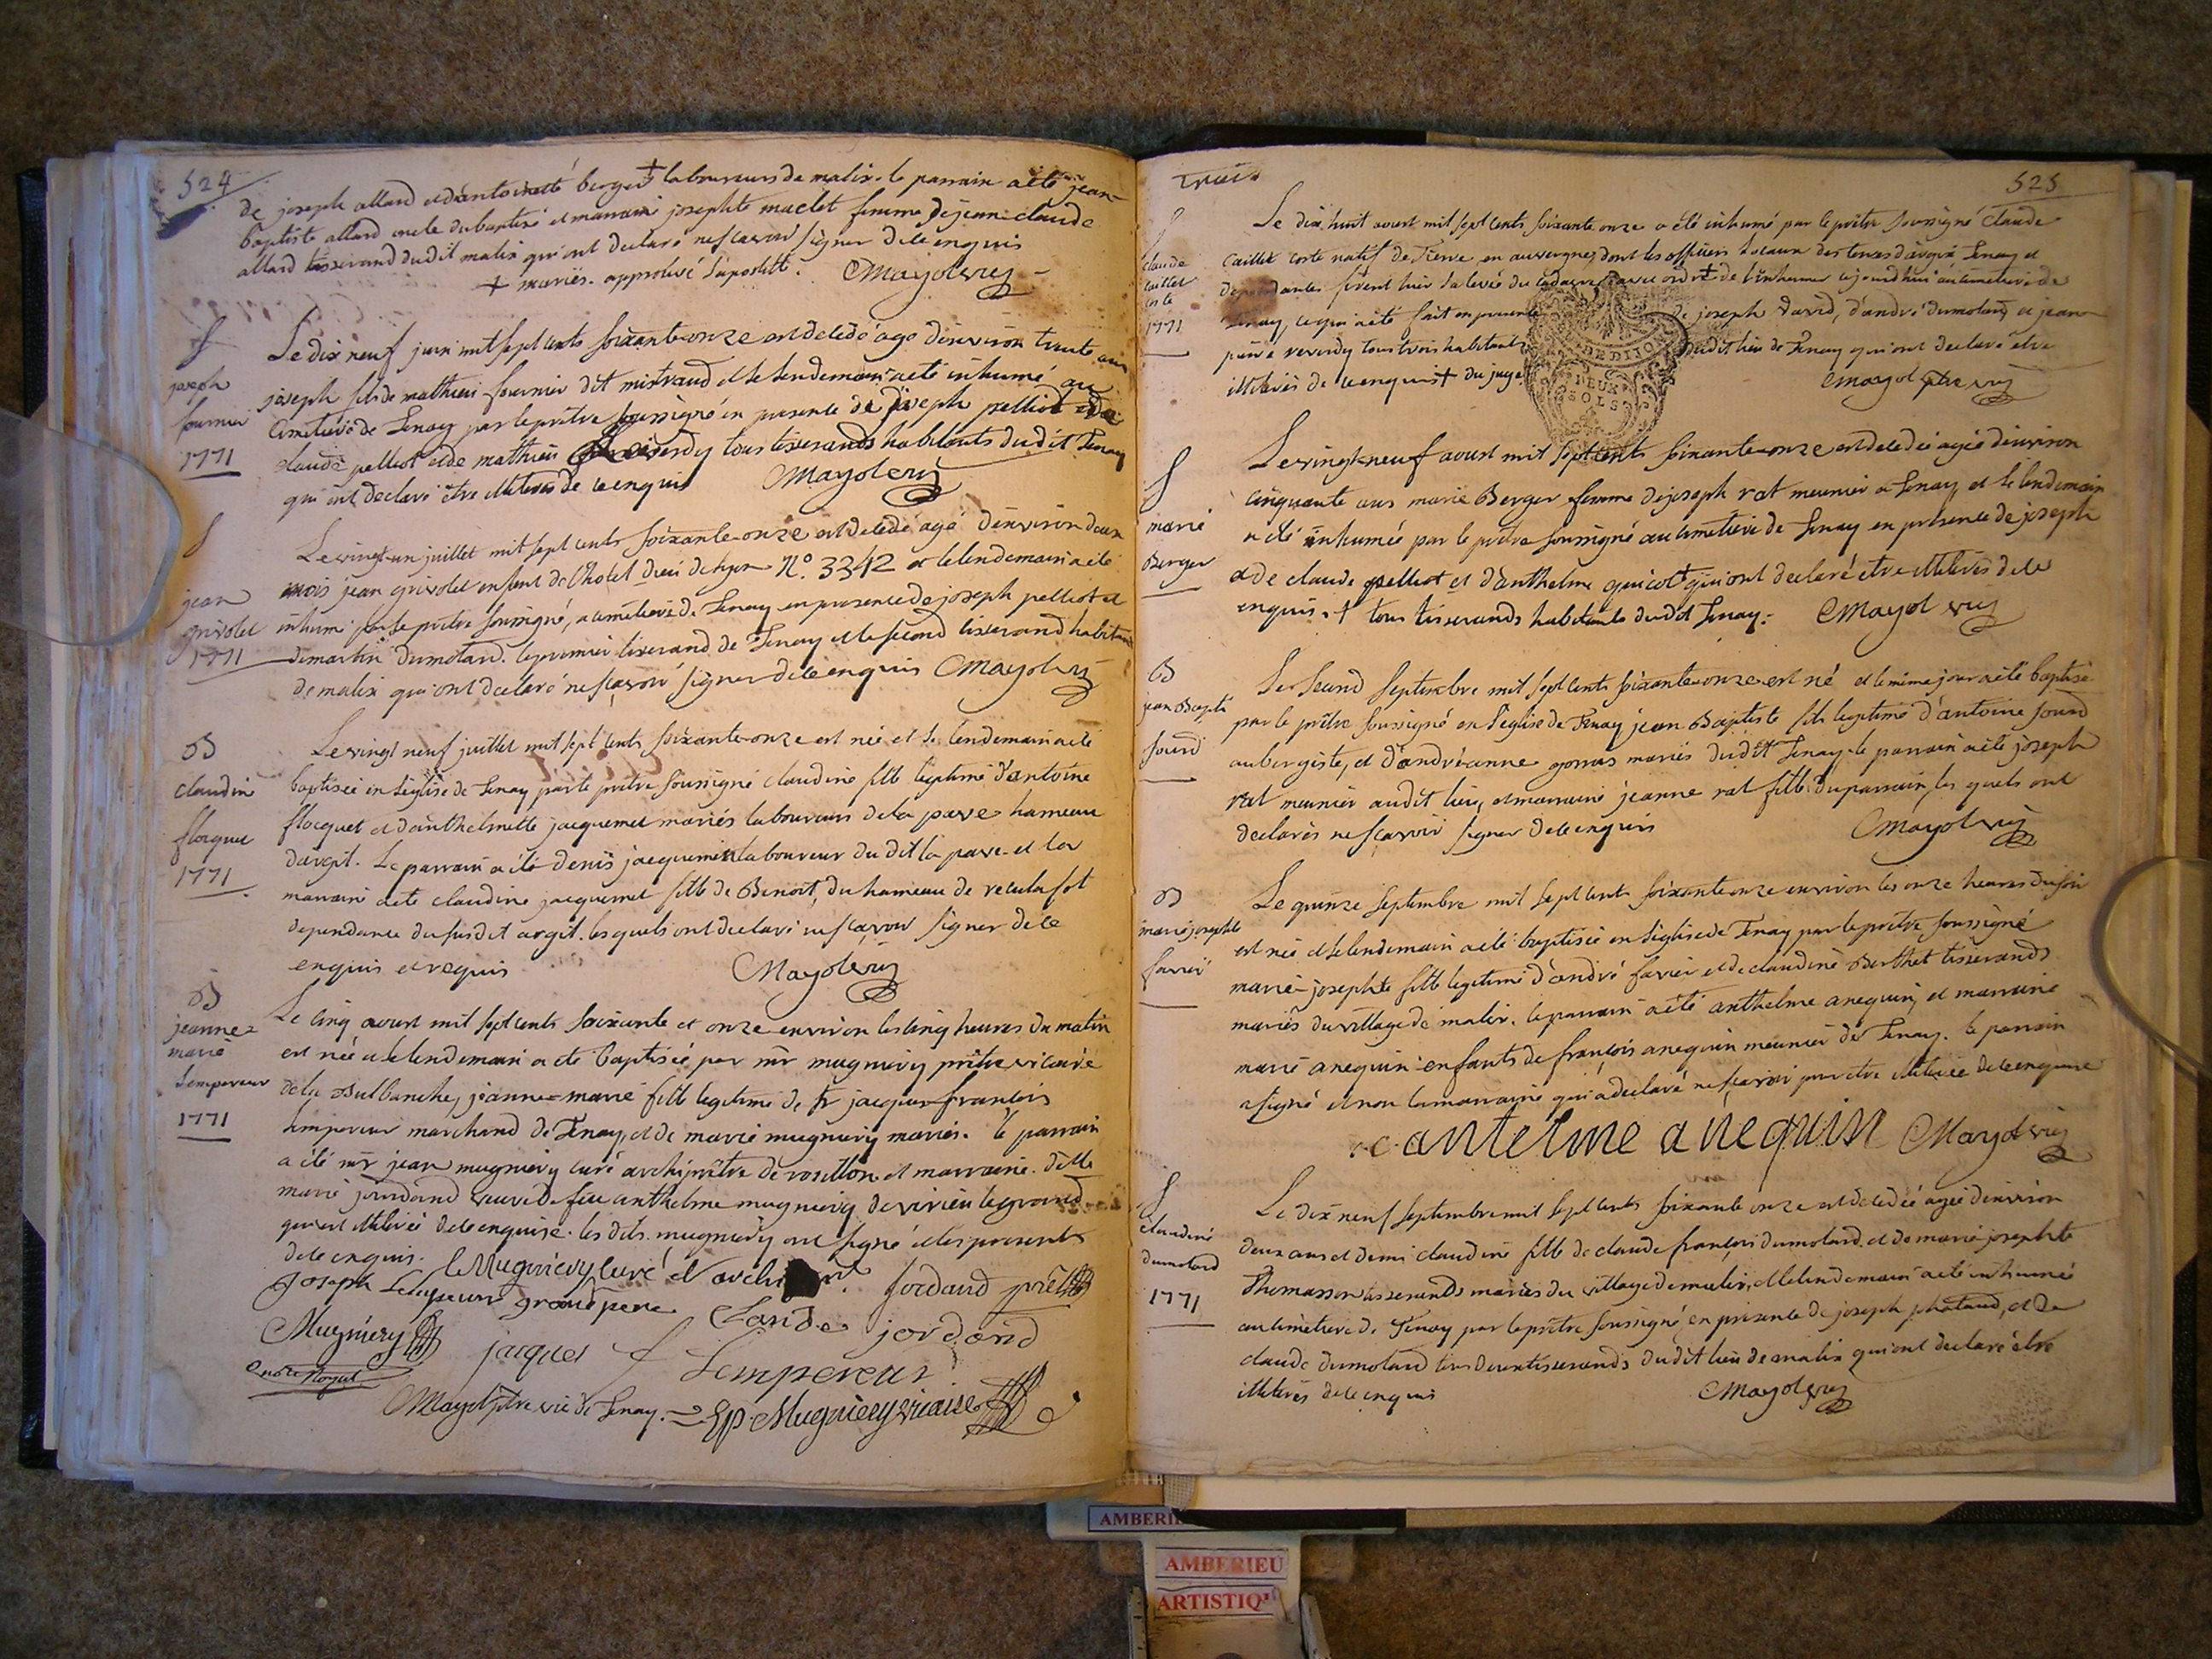 524
de joseph allard et d'antoinette berger + laboureurs de malix. le parrain a été jean-
baptiste allard oncle du baptisé et marraine josephte maclet femme de jean-claude
allard tisserand dudit malix qui ont declaré ne sçavoir signer de ce enquis
+ mariés. approuvé l'apostille. Mayol vic
S
joseph
fournier
1771
Le dix neuf juin mil sept cents soixante-onze est decedé agé d'environ trente ans
joseph fils de mathieu fournier dit mistraud et le lendemain a été inhumé au
cimetiere de Tenay par le prêtre soussigné en presence de joseph pelliot et de
claude pelliot et de mathieu reverdy tous tisserands habitants dudit Tenay
qui ont declaré être illiterés de ce enquis Mayol vic
S
jean
grivolet
1771
Le vingt-un juillet mil sept cents soixante-onze est decedé agé d'environ deux
mois jean grivolet enfant de l'hotel dieu de lyon N.o 3342 et le lendemain a été
inhumé par le prêtre soussigné, au cimetiere de Tenay en presence de joseph pelliot et
de martin dumolard. le premier tisserand de Tenay et le second tisserand habitant
de malix qui ont declaré ne sçavoir signer de ce enquis Mayol vic
B
claudine
floquet
1771
Le vingt neuf juillet mil sept cents soixante-onze est née et le lendemain a été
baptisée en l'église de Tenay par le prêtre soussigné claudine fille legitime d'antoine
flocquet et d'anthelmette jacquemet mariés laboureurs de la pave hameau
d'argit. Le parrain a été denis jacquemet laboureur du dit la pave et la
marraine a été claudine jacquemet fille de Benoit, du hameau de reculafol
dependance du susdit argit. lesquels ont declaré ne sçavoir signer de ce
enquis et requis Mayol vic
B
jeanne-
marie
Lempereur
1771
Le cinq aoust mil sept cents soixante et onze environ les cinq heures du matin
est née et le lendemain a été baptisée par mr mugniery prêtre vicaire
de la Balbanche, jeanne-marie fille legitime de sr jacques-françois
Lempereur marchand de Tenay, et de marie mugniery mariés. le parrain
a été mr jean mugniery curé archiprêtre de rosillon et marraine. delle
marie jourdand veuve de feu anthelme mugniery de virieu le grand
qui est illiterée de ce enquise. les dits. mugniery ont signé et les presents
de ce enquis. Mugniery curé et archi
Joseph Lempereur grand pere Jordand prêtre
Mugniery Claude jordand
jacques f Lempereur
notre Royal
Mayol ptre vic de Tenay. Mugniery vicaire
Trois
525
S
claude
caillet
1771
Le dix huit aoust mil sept cents soixante onze a été inhumé par le prêtre soussigné Claude
Caillet natif de en auvergne, dont les officiers locaux des terres d'argix Tenay et
dependantes firent hier la levée du cadavre avec ordre + de l'inhumer aujourd'hui au cimetiere de
Tenay, ce qui a été fait en presence de joseph david, d'andré dumolard et jean
pierre reverdy tous trois habitants dudit lieu de Tenay qui ont declaré être
illiterés de ce enquis + du juge. Mayol ptre vic
DE DIJON
DEUX
SOLS
S
marie
Berger
Le vingt-neuf aoust mil sept cents soixante-onze est decedée agée d'environ
cinquante ans marie Berger femme de joseph rat meunier à Tenay, et le lendemain
a été inhumée par le prêtre soussigné au cimetiere de Tenay en presence de joseph
et de claude pelliot et d'anthelme quicot + qui ont declaré être illiterés de ce
enquis. + tous tisserands habitants dudit Tenay. Mayol vic
B
jean Bapte
sourd
Le second septembre mil sept cents soixante-onze est né et le même jour a été baptisé
par le prêtre soussigné en l'église de Tenay jean Baptiste fils legitime d'antoine sourd
aubergiste, et d'andréanne gorras mariés dudit Tenay. le parrain a été joseph
rat meunier audit lieu, et marraine jeanne rat fille du parrain, les quels ont
declarés ne sçavoir signer de ce enquis Mayol vic
B
marie josephte
favier
Le quinze septembre mil sept cents soixante onze environ les onze heures du soir
est née et le lendemain a été baptisée en l'église de Tenay par le prêtre soussigné
marie-josephte fille legitime d'andré favier et de claudine Berthet tisserands
mariés du village de malix. le parrain a été anthelme anequin, et marraine
marie anequin enfants de françois anequin meunier de Tenay. le parrain
a signé et non la marraine qui a declaré ne sçavoir pour être illiterée de ce enquise
antelme anequin Mayol vic
S
claudine
dumolard
1771
Le dix neuf septembre mil sept cents soixante onze est decedée agée d'environ
deux ans et demi claudine fille de claude françois dumolard et de marie-josephte
Thomasson tisserands mariés du village de malix, et le lendemain a été inhumée
au cimetiere de Tenay par le prêtre soussigné en presence de joseph phataud, et de
claude dumolard tous deux tisserands du dit lieu de malix qui ont declaré être
illiterés de ce enquis Mayol vic
AMBERIE
AMBERIEU
ARTISTIQ